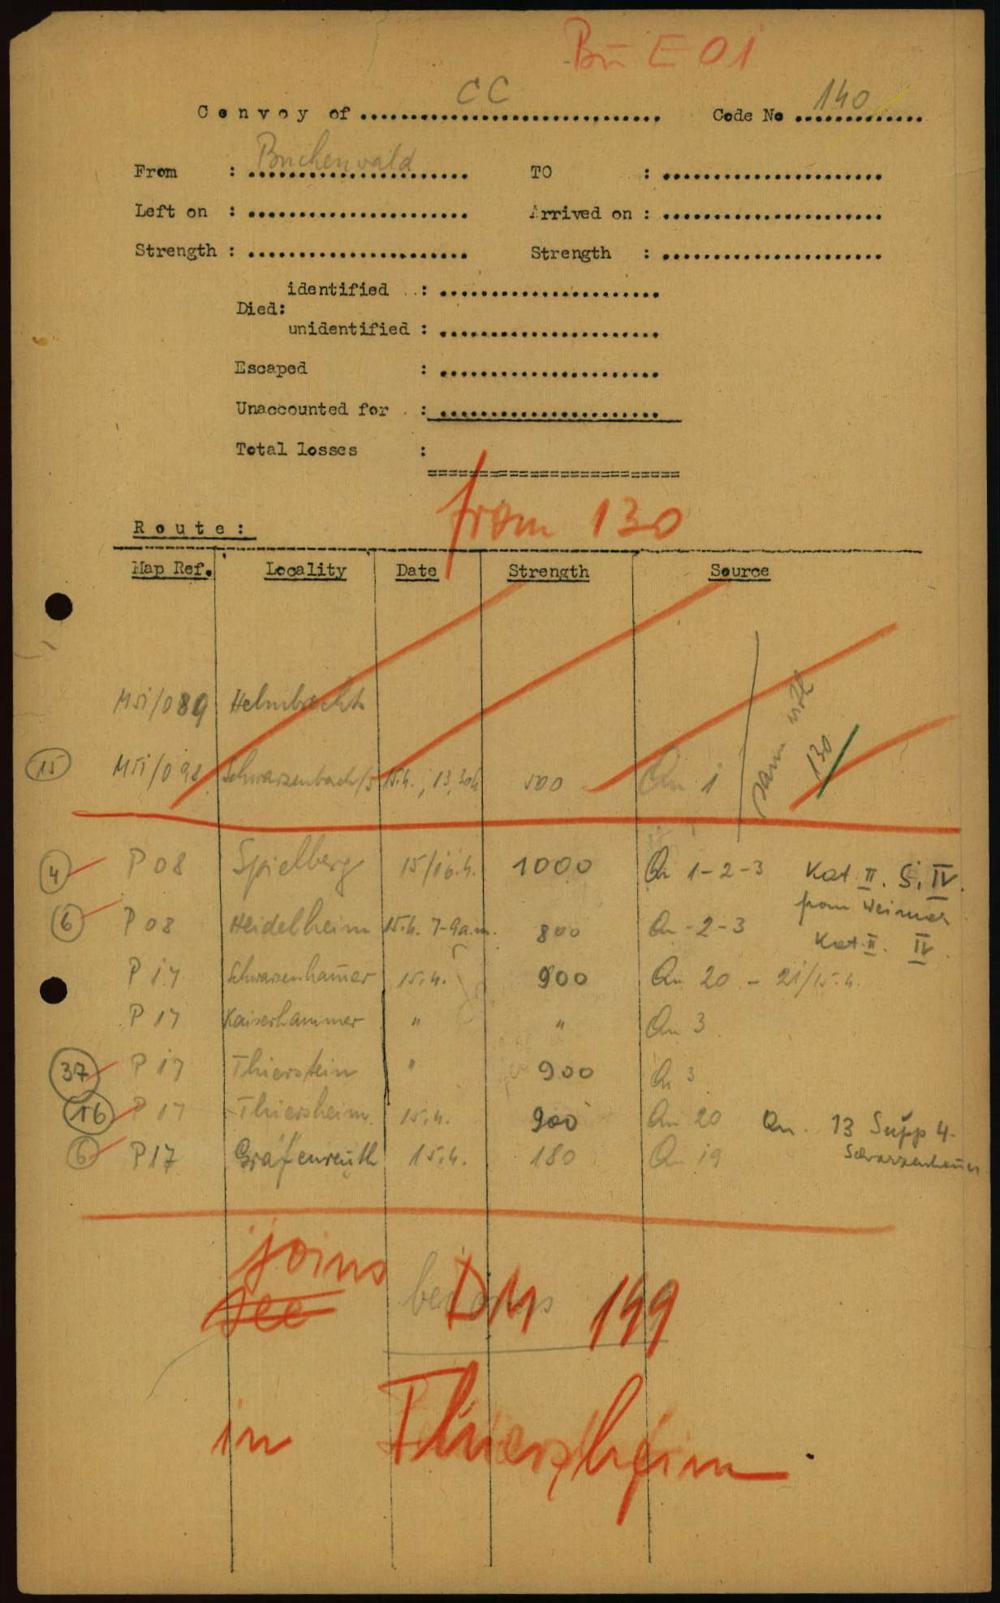 Bu E 01
Convoy of CC Code No 140
From : Buchenwald TO :
Left on : Arrived on :
Strength : Strength :
identified :
Died:
unidentified :
Escaped :
Unaccounted for :
Total losses :
from 130
Route:
Map Ref. Locality Date Strength Source
M51/089 Helmbrecht
15 M51/092 Schwarzenbach/S 15.4., 13,30h 500 Qu 1
130
4 P 08 Spielberg 15/16.4. 1000 Qu 1-2-3 Kat II. S. IV.
from Weimar
6 P 08 Heidelheim 15.4. 7-9a.m. 800 Qu -2-3 Kat II. IV
P 17 Schwarzenhammer 15.4. 900 Qu 20 - 21/15.4.
P 17 Kaiserhammer " " Qu 3
37 P 17 Thierstein " 900 Qu 3
16 P 17 Thiersheim 15.4. 900 Qu 20 Qu. 13 Supp 4.
6 P17 Gräfenreuth 15.4. 180 Qu 19
joins
see DM 149
in Thiersheim.